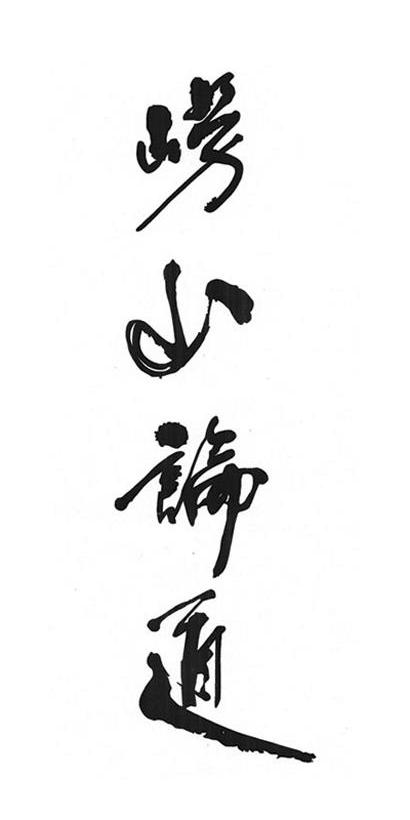 崂山論道